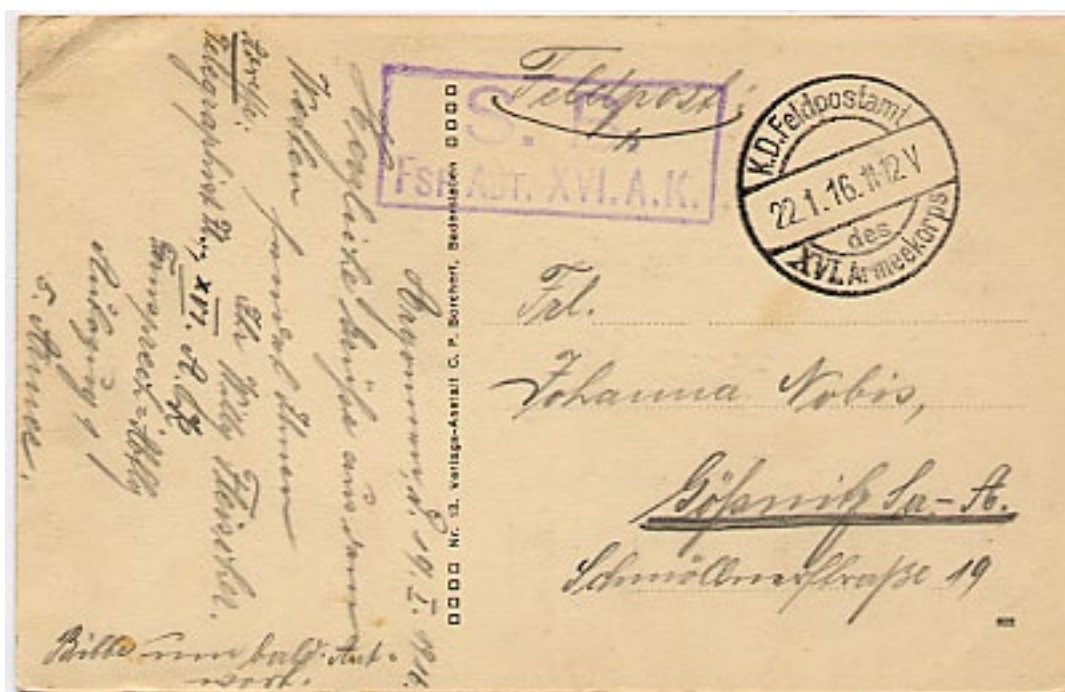 Feldpost
S. B.
FSP. ABT. XVI. A. K.
K.D. Feldpostamt
22.1.16. 11-12 V
des
XVI. Armeekorps
Frl.
Johanna Nobis,
Gößnitz Sa-A.
Schmöllnerstraße 19
Nr. 13. Verlags-Anstalt C. P. Borchert, Badersleben
Argonnen, d. 19. I. 1916.
Herzliche Grüße aus dem
Westen sendet Ihnen
Ihr Willy Fleischer.
Adresse:
Telegraphist XVI. A. K.
Fernsprech-Abtlg
5. Armee.
Bitte um bald. Ant-
wort.